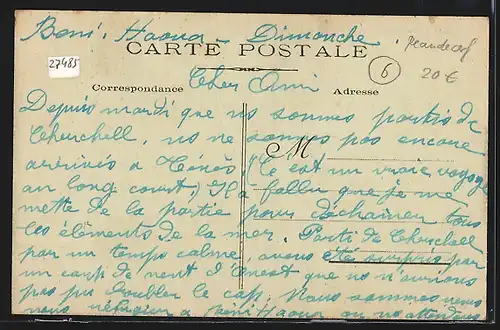 Beni-Haoua - Dimanche.
CARTE POSTALE
27485
6
20€
Correspondance
Adresse
M
Cher Ami
Depuis mardi que ns sommes partis de
Cherchell, ns ne sommes pas encore
arrivés à Ténès (C'est un vrai voyage
au long court,) Il a fallu que je me
mette de la partie pour déchainer tous
les éléments de la mer. Parti de Cherchell
par un temps calme, avons été surpris par
un coup de vent d'Ouest que ns n'avions
pas pu doubler le cap. Nous sommes venus
nous réfugier à Beni Haoua ou ns attendons